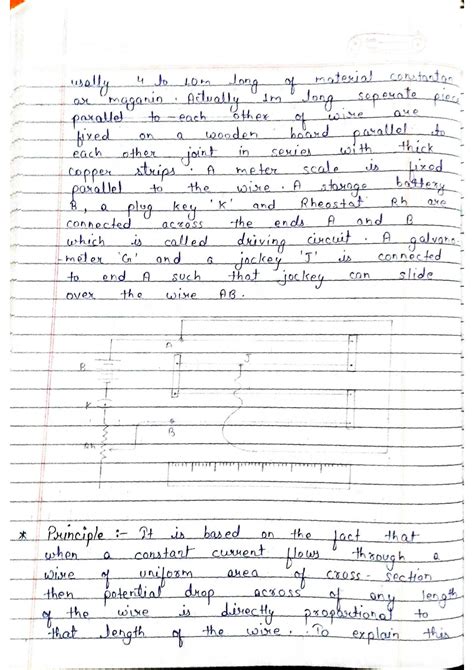 usally 4 to 10m long of material constantan
or maganin. Actually 1m long seperate piec
parallel to each other of wire are
fixed on a wooden board parallel to
each other joint in series with thick
copper strips. A meter scale is fixed
parallel to the wire. A storage battery
B, a plug key 'K' and Rheostat Rh are
connected across the ends A and B
which is called driving circuit. A galvano-
meter 'G' and a jockey 'J' is connected
to end A such that jockey can slide
over the wire AB.
A
J
B
K
B
Rh
* Principle :- It is based on the fact that
when a constant current flows through a
wire of uniform area of cross-section
then potential drop across of any length
of the wire is directly proportional to
that length of the wire. To explain this